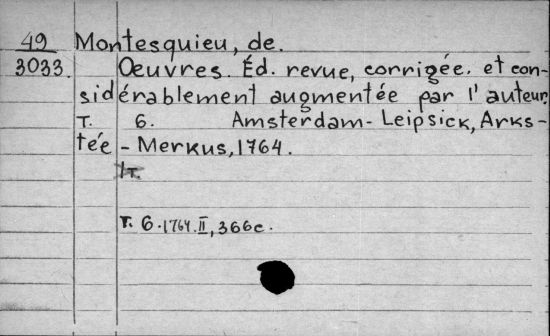 49 Montesquieu, de.
3033. Œuvres. Éd. revue, corrigée. et con-
sidérablement augmentée par l'auteur.
T. 6. Amsterdam-Leipsick, Arks-
tée - Merkus, 1764.
T. 6. 1764. II, 366c.